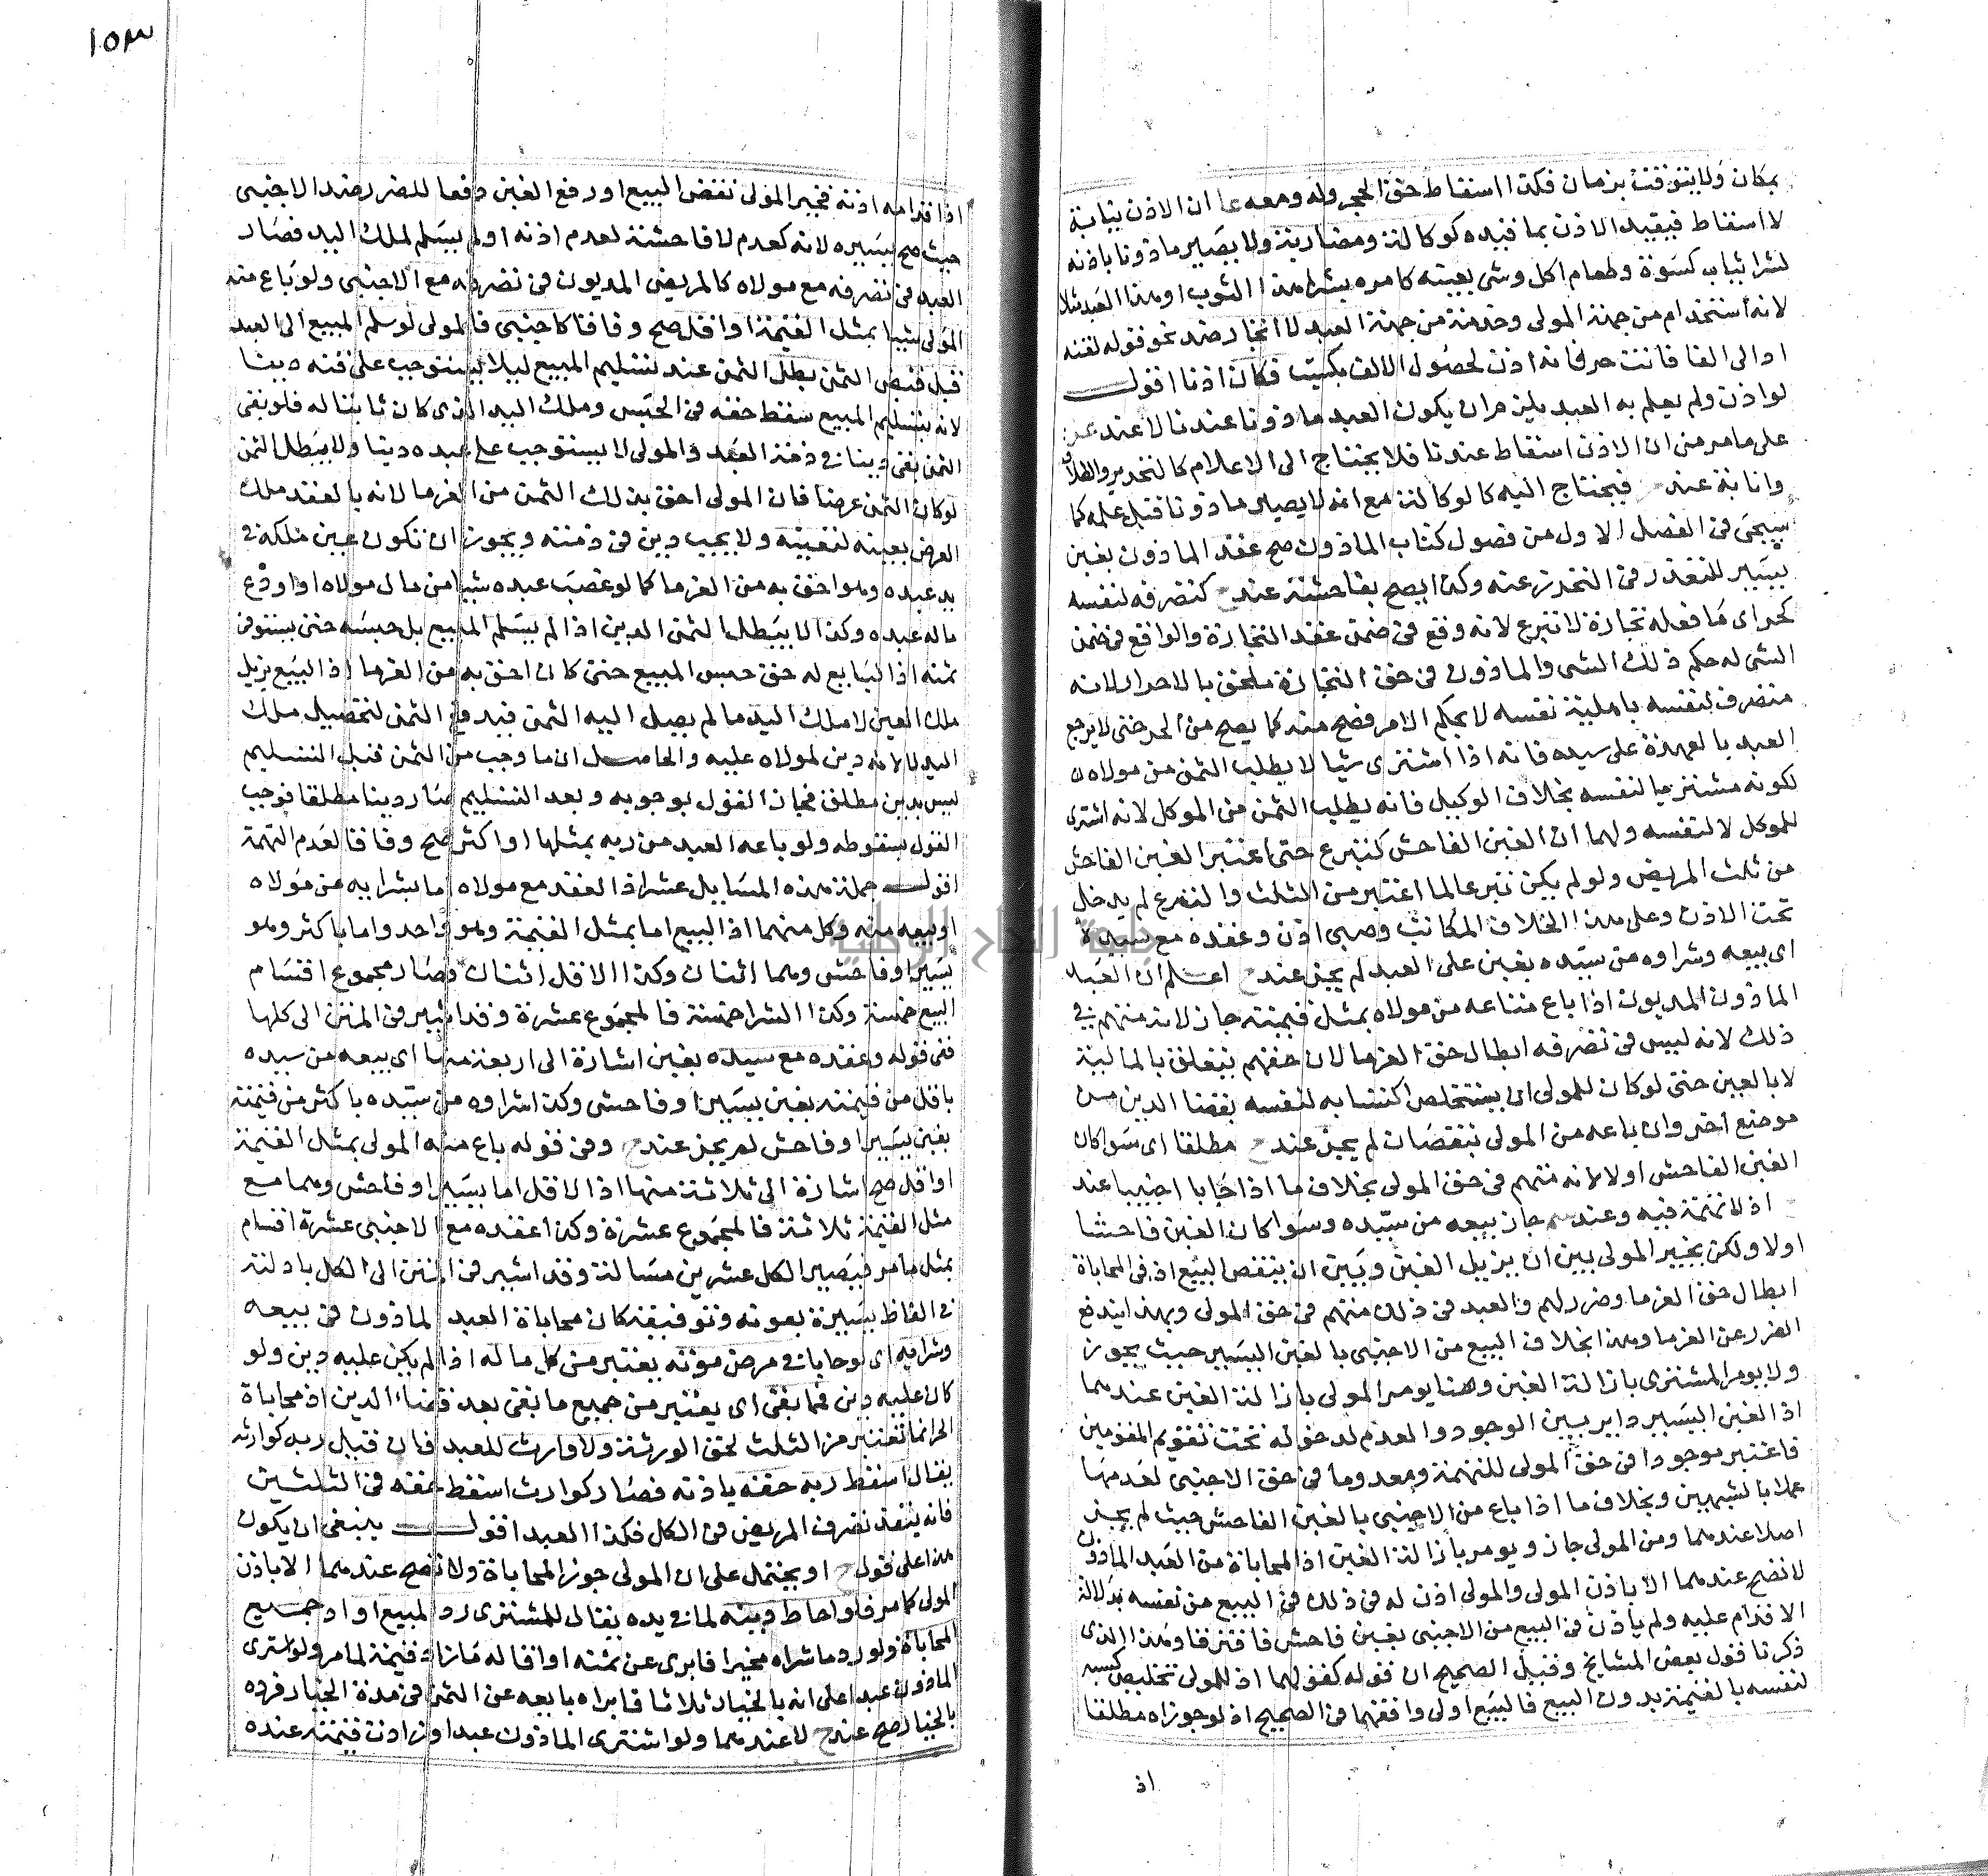 بمكان ولا يتوقت بزمان فكذا اسقاط حق الحجر وله ومعه ان الاذن نيابة
لا اسقاط فيقيد الاذن بما قيده كوكالة ومضاربة ولا يصير ماذونا باذنه
لشرا ثياب كسوة وطعام اكل وشى بعينه كامره بشرا هذا الثوب او هذا العبد مثلا
لانه استخدام من جهة المولى وخدمة من جهة العبد لا اتجار ضد نحو قوله لقنه
اد الى الفا فانت حر فانه اذن لحصول الالف بكسب فكان اذنا اقول
لو اذن ولم يعلم به العبد يلزم ان يكون العبد ماذونا عندنا لا عند
على ما مر من ان الاذن اسقاط عندنا فلا يحتاج الى الاعلام كالتحرير والطلاق
وانابة عند فيحتاج اليه كالوكالة مع انه لا يصير ماذونا قبل علمه كما
سيجى فى الفصل الاول من فصول كتاب الماذون صح عقد الماذون بغبن
يسير للتعذر فى التحرز عنه وكذا يصح بفاحشة عند ح كتصرفه لنفسه
كحر اى ما فعله تجارة لا تبرع لانه وقع فى ضمن عقد التجارة والواقع فى ضمن
الشى له حكم ذلك الشى والماذون فى حق التجارة ملحق بالاحرار لانه
متصرف لنفسه باهلية نفسه لا بحكم الامر فصح منه كما يصح من الحر حتى لا يرجع
العبد بالعهدة على سيده فانه اذا اشترى شيا لا يطلب الثمن من مولاه
لكونه مشتريا لنفسه بخلاف الوكيل فانه يطلب الثمن من الموكل لانه اشترى
للموكل لا لنفسه ولهما ان الغبن الفاحش كتبرع حتى اعتبر الغبن الفاحش
من ثلث المريض ولو لم يكن تبرعا لما اعتبر من الثلث والتبرع لم يدخل
تحت الاذن وعلى هذا الخلاف المكاتب وصبى اذن وعقده مع سيده لا
اى بيعه وشراوه من سيده بغبن على العبد لم يجز عند ح اعلم ان العبد
الماذون المديون اذا باع متاعه من مولاه بمثل قيمته جاز لانه متهم فى
ذلك لانه ليس فى تصرفه ابطال حق الغرما لان حقهم يتعلق بالمالية
لا بالعين حتى لو كان للمولى ان يستخلص اكتسابه لنفسه بقضا الدين من
موضع اخر وان باعه من المولى بنقصان لم يجز عند ح مطلقا اى سوا كان
الغبن الفاحش اولا لانه متهم فى حق المولى بخلاف ما اذا حابا اجنبيا عند
ح اذ لا تهمة فيه وعندهما جاز بيعه من سيده وسوا كان الغبن فاحشا
اولا ولكن يخير المولى بين ان يزيل الغبن وبين ان ينقض البيع اذ فى المحاباة
ابطال حق الغرما وضرر لهم والعبد فى ذلك متهم فى حق المولى وبهذا يندفع
الضرر عن الغرما وهذا بخلاف البيع من الاجنبى بالغبن اليسير حيث يجوز
ولا يومر المشترى بازالة الغبن وهنا يومر المولى بازالة الغبن عندهما
اذ الغبن اليسير داير بين الوجود والعدم لدخوله تحت تقويم المقومين
فاعتبر موجودا فى حق المولى للتهمة ومعدوما فى حق الاجنبى لعدمها
عملا بالشبهين وبخلاف ما اذا باع من الاجنبى بالغبن الفاحش حيث لم يجز
اصلا عندهما ومن المولى جاز ويومر بازالة الغبن اذ المحاباة من العبد الماذون
لا تصح عندهما الا باذن المولى والمولى اذن له فى ذلك فى البيع من نفسه بدلالة
الاقدام عليه ولم ياذن فى البيع من الاجنبى بغبن فاحش فافترقا وهذا الذى
ذكرنا قول بعض المشايخ وقيل الصحيح ان قوله كقولهما اذ للمولى تخليص كسبه
لنفسه بالقيمة بدون البيع فالبيع اولى وافقهما فى الصحيح اذ لو جوزاه مطلقا
اذ
١٥٣
اذ اقدامه اذنه فيخير المولى نقض البيع او رفع الغبن دفعا للضرر ضد الاجنبى
حيث صح بيسيره لانه كعدم لا فاحشة لعدم اذنه او لم يسلم لملك اليد فصار
العبد فى تصرفه مع مولاه كالمريض المديون فى تصرفه مع الاجنبى ولو باع منه
المولى شيا بمثل القيمة او اقل صح وفاقا كاجنبى فالمولى لو سلم المبيع الى العبد
قبل قبض الثمن بطل الثمن عند تسليم المبيع ليلا يستوجب على قنه دينا
لانه بتسليم المبيع سقط حقه فى الحبس وملك اليد الذى كان ثابتا له فلو بقى
الثمن بقى دينا فى ذمة العبد والمولى لا يستوجب على عبده دينا ولا يبطل الثمن
لو كان الثمن عرضا فان المولى احق بذلك الثمن من الغرما لانه بالعقد ملك
العرض بعينه لتعينه ولا يجب دين فى ذمته ويجوز ان تكون عين ملكه فى
يد عبده وهو احق به من الغرما كما لو غصب عبده شيا من مال مولاه او اودع
ماله عبده وكذا لا يبطل الثمن الدين اذا لم يسلم المبيع بل حبسه حتى يستوفى
ثمنه اذ البايع له حق حبس المبيع حتى كان احق به من الغرما اذ البيع يزيل
ملك العين لا ملك اليد ما لم يصل اليه الثمن فيدفع الثمن لتحصيل ملك
اليد لا لانه دين لمولاه عليه والحاصل ان ما وجب من الثمن قبل التسليم
ليس بدين مطلق فجاز القول بوجوبه وبعد التسليم صار دينا مطلقا فوجب
القول بسقوطه ولو باعه العبد من ربه بمثلها او اكثر صح وفاقا لعدم التهمة
اقول جملة هذه المسايل عشر اذ العقد مع مولاه اما بشرايه من مولاه
او بيعه منه وكل منهما اذ البيع اما بمثل القيمة وهو واحد واما باكثر وهو
يسير او فاحش وهما اثنان وكذا الاقل اثنان فصار مجموع اقسام
البيع خمسة وكذا الشرا خمسة فالمجموع عشرة وقد اشير فى المتن الى كلها
ففى قوله وعقده مع سيده بغبن اشارة الى اربعة منها اى بيعه من سيده
باقل من قيمته بغبن يسير او فاحش وكذا شراوه من سيده باكثر من قيمته
بغبن يسير او فاحش لم يجز عند ح وفى قوله باع منه المولى بمثل القيمة
او اقل صح اشارة الى ثلاثة منها اذ الاقل اما يسير او فاحش وهما مع
مثل القيمة ثلاثة فالمجموع عشرة وكذا عقده مع الاجنبى عشرة اقسام
بمثل ما مر فيصير الكل عشرين مسالة وقد اشير فى المتن الى الكل بادلة
فى الفاظ يسيرة بعونه وتوفيقه كان محاباة العبد الماذون فى بيعه
وشرايه اى لو حابا فى مرض موته يعتبر من كل ماله اذا لم يكن عليه دين ولو
كان عليه دين فما بقى اى يعتبر من جميع ما بقى بعد قضاء الدين اذ محاباة
الحر انما تعتبر من الثلث لحق الورثة ولا وارث للعبد فان قيل ربه كوارثه
يقال اسقط ربه حقه باذنه فصار كوارث اسقط حقه فى الثلثين
فانه ينفذ تصرف المريض فى الكل فكذا العبد اقول ينبغى ان يكون
هذا على قول ح او يحتمل على ان المولى جوز المحاباة ولا تصح عندهما الا باذن
المولى كما مر فلو احاط دينه لما فى يده يقال للمشترى رد المبيع او اد جميع
المحاباة ولو رد ما شراه مخيرا فابرى عن ثمنه او اقاله ما زاد قيمة لما مر ولو اشترى
الماذون عبدا على انه بالخيار ثلاثا فابراه بايعه عن الثمن فى مدة الخيار فرده
بالخيار صح عند ح لا عندهما ولو اشترى الماذون عبدا وزادت قيمته عنده
جامعة النجاح الوطنية